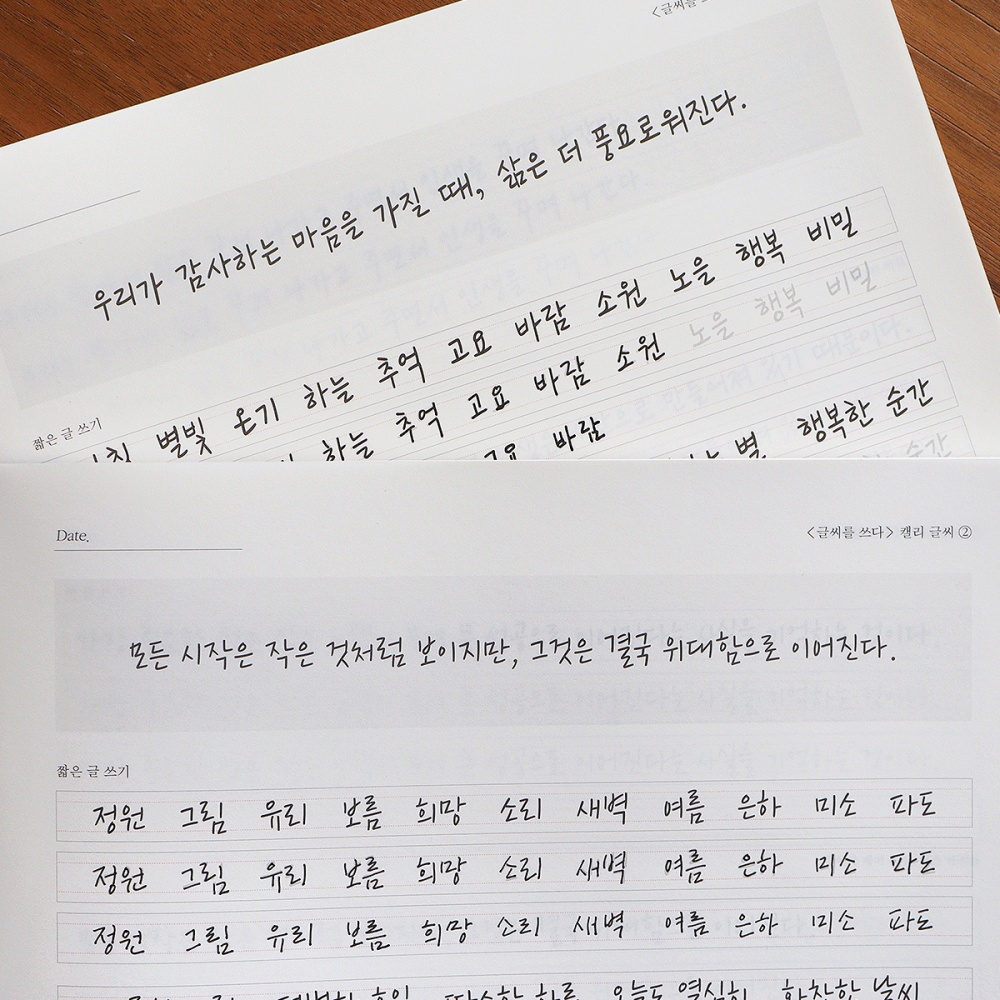 <글씨를
우리가 감사하는 마음을 가질 때, 삶은 더 풍요로워진다.
짧은 글 쓰기
별빛 온기 하늘 추억 고요 바람 소원 노을 행복 비밀
하늘 추억 고요 바람 소원 노을 행복 비밀
고요 바람 별 행복한 순간
순간
Date.
<글씨를 쓰다> 캘리 글씨 ②
모든 시작은 작은 것처럼 보이지만, 그것은 결국 위대함으로 이어진다.
짧은 글 쓰기
정원 그림 유리 보름 희망 소리 새벽 여름 은하 미소 파도
정원 그림 유리 보름 희망 소리 새벽 여름 은하 미소 파도
정원 그림 유리 보름 희망 소리 새벽 여름 은하 미소 파도
따스한 하루 오늘도 열심히 화창한 날씨